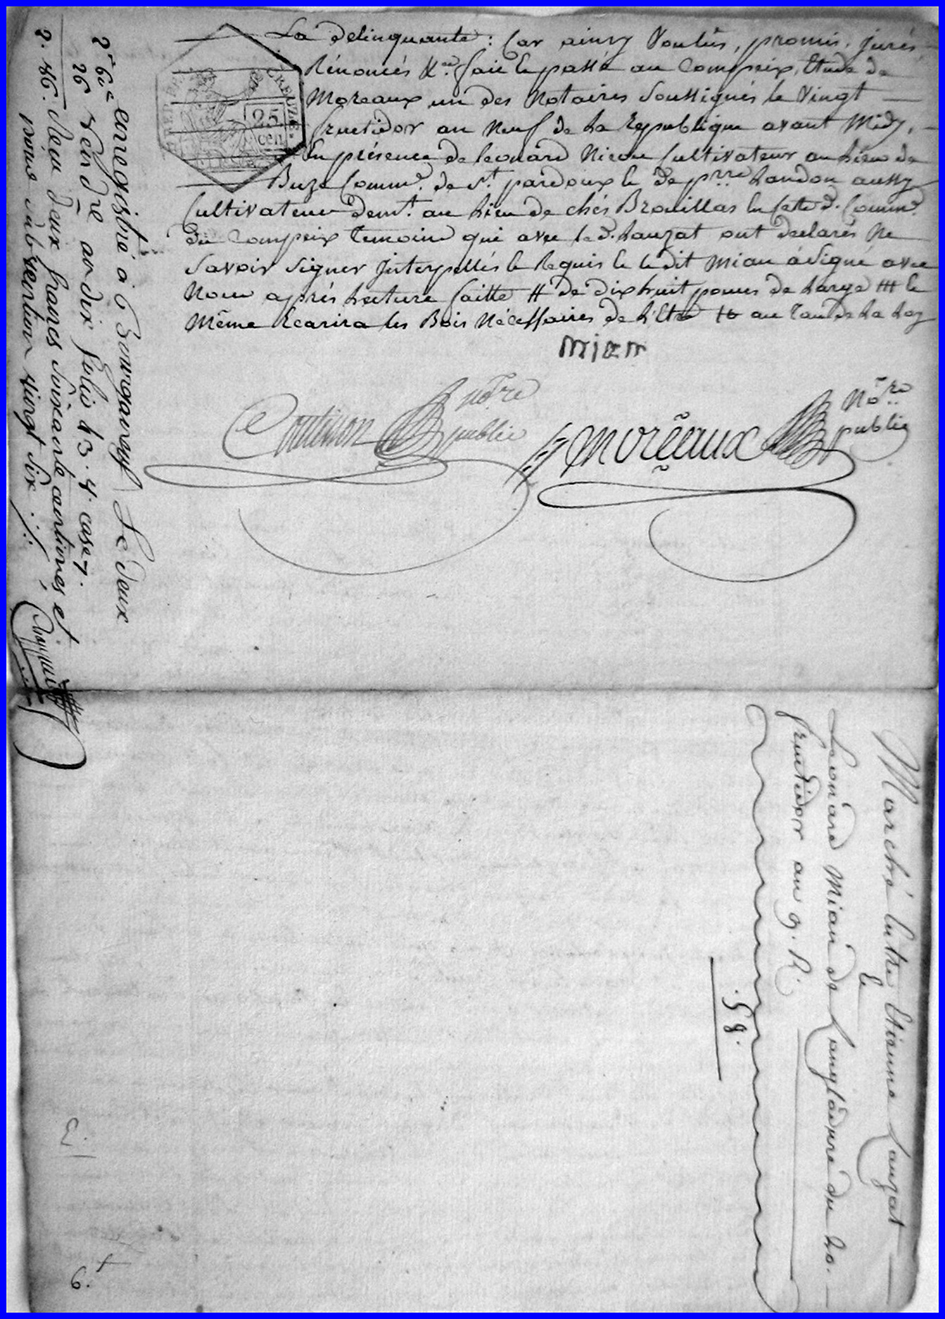 La délinquante : Car ainsy Voulus, promis, jurés
Rénoncés &c. fait et passé au Compeix, Etude de
Moreaux un des Notaires Soussignés le Vingt
fructidor an Neuf de la République avant Midy,
En présence de Leonard Micou Cultivateur au Lieu de
Buze Comm.e de St. pardoux et de p.rre Landon aussy
Cultivateur dem.t au Lieu de chés Brouillas en cette d. Comm.e
du Compeix temoins qui avec led. Lauzat ont déclarés Ne
Savoir Signer Interpellés et Requis et ledit Mian à Signé avec
Nous après Lecture faitte # de dixhuit pouces de Large ## le
Même Ecarira les Bois Nécessaires
mian
Coutisson no.re public
Moreaux No.re public
enregistré à Bourganeuf Le deux
vend.re an dix folio 43. v. case 7.
Reçu deux francs soixante centimes et
pour subvention vingt six
2. 60
26
2. 86.
Marché Entre Etienne Lauzat
et
Leonard Mian de Langladure du 20.
fructidor an 9. R.
58.
6.t
25
CREUSE